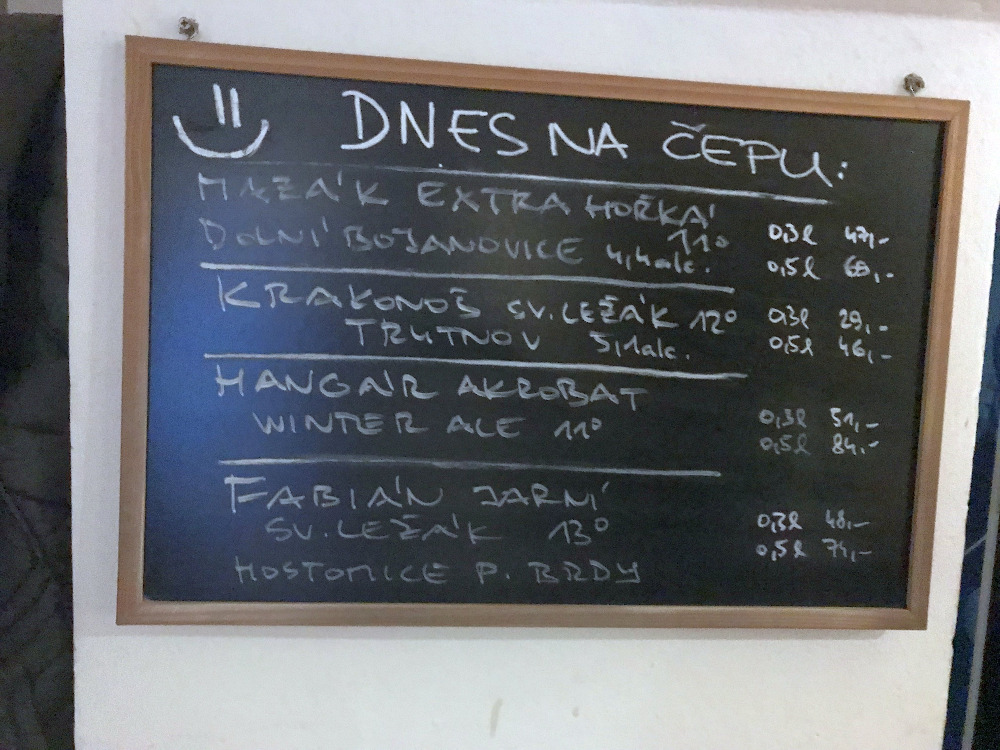 DNES NA ČEPU:
MAZÁK EXTRA HOŘKÁ
11°
0,3l 47,-
DOLNÍ BOJANOVICE 4,4alc.
0,5l
KRAKONOŠ SV. LEŽÁK 12°
0,3l 29,-
TRUTNOV 5,1alc.
0,5l 46,-
HANGÁR AKROBAT
0,3l 51,-
WINTER ALE 11°
0,5l 84,-
FABIÁN JARNÍ
0,3l 48,-
SV. LEŽÁK 13°
0,5l
HOSTOMICE P. BRDY